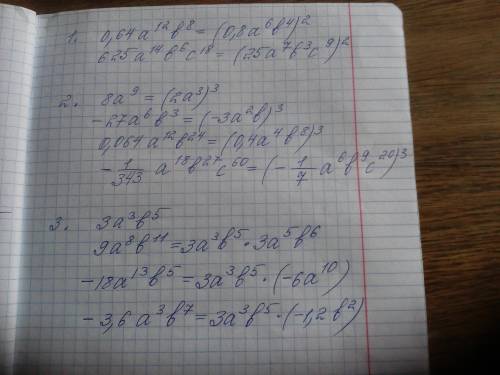 1. 0,64a¹²b⁸ = (0,8a⁶b⁴)²
625a¹⁴b⁶c¹⁸ = (25a⁷b³c⁹)²
2. 8a⁹ = (2a³)³
-27a⁶b³ = (-3a²b)³
0,064a¹²b²⁴ = (0,4a⁴b⁸)³
-1/343 a¹⁸b²⁷c⁶⁰ = (-1/7 a⁶b⁹c²⁰)³
3. 3a³b⁵
9a⁸b¹¹ = 3a³b⁵·3a⁵b⁶
-18a¹³b⁵ = 3a³b⁵·(-6a¹⁰)
-3,6a³b⁷ = 3a³b⁵·(-1,2b²)